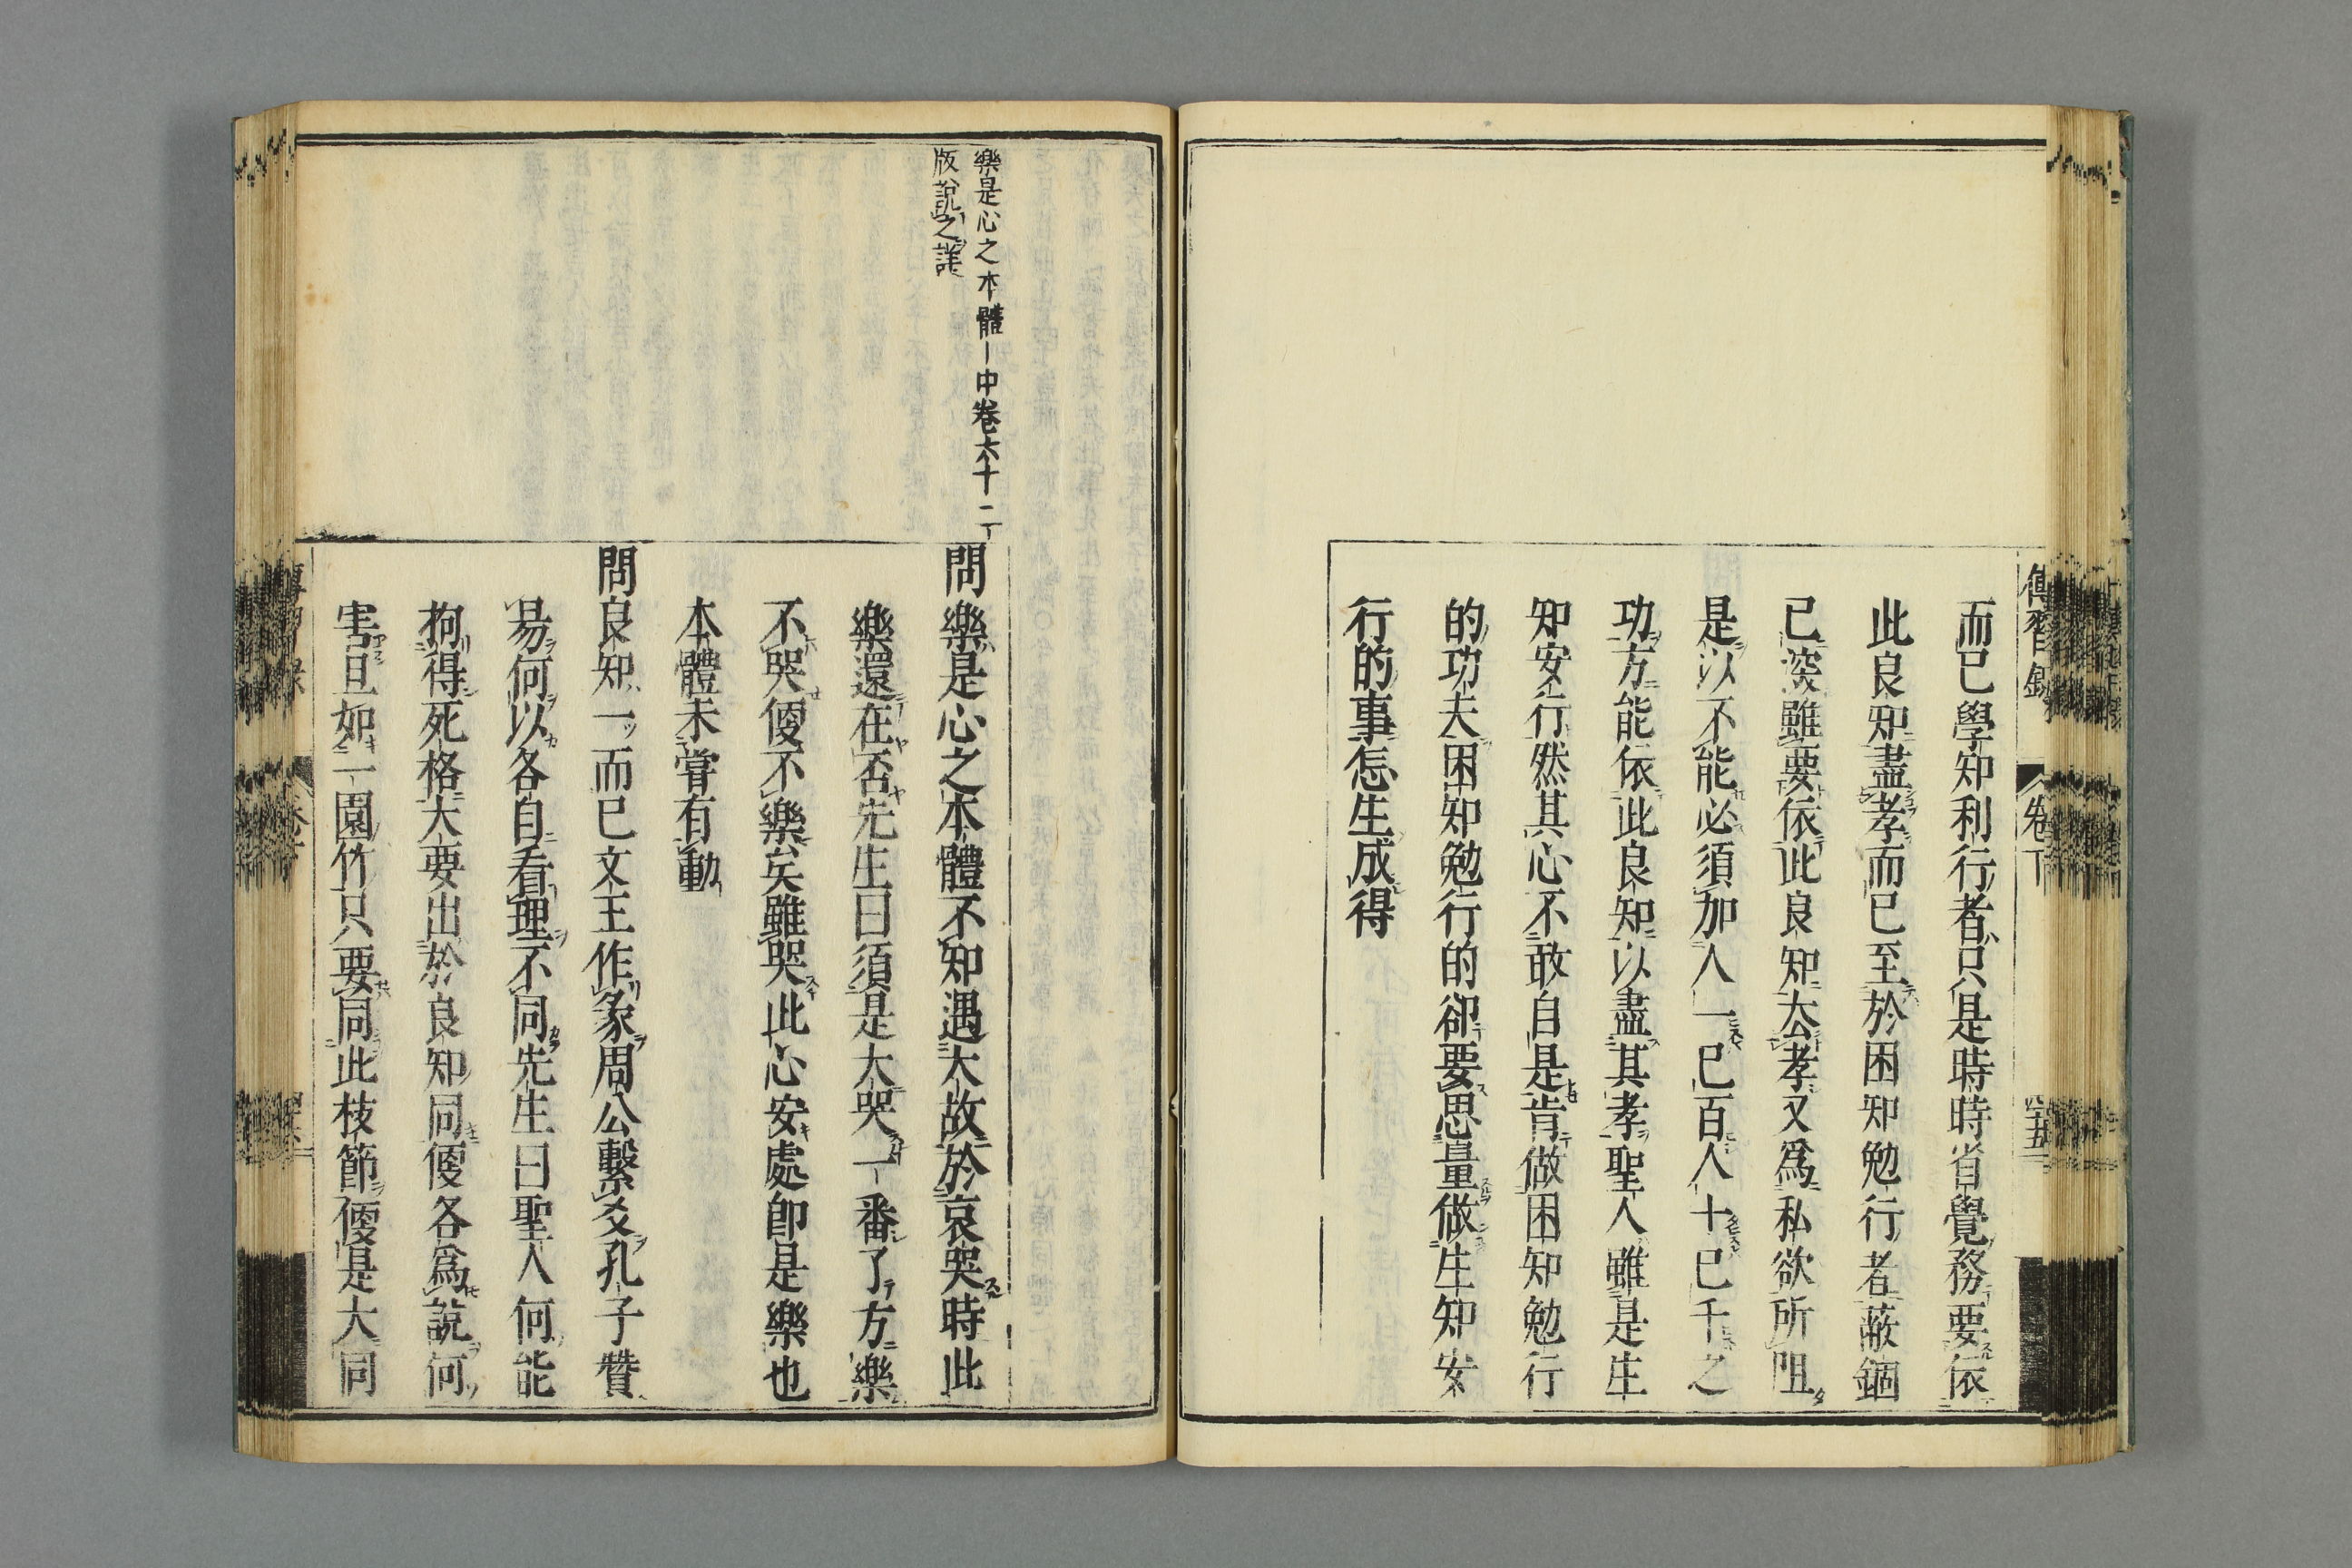 傳習錄
卷下
四十五
而已學知利行者只是時時省覺務要依
此良知盡孝而已至於困知勉行者蔽錮
已深雖要依此良知去孝又爲私欲所阻
是以不能必須加人一己百人十己千之
功方能依此良知以盡其孝聖人雖是生
知安行然其心不敢自是肯做困知勉行
的功夫困知勉行的卻要思量做生知安
行的事怎生成得
樂是心之本體ー中卷六十二丁
版說之詳
問樂是心之本體不知遇大故於哀哭時此
樂還在否先生曰須是大哭一番了方樂
不哭便不樂矣雖哭此心安處卽是樂也
本體未嘗有動
問良知一而已文王作彖周公繫爻孔子贊
易何以各自看理不同先生曰聖人何能
拘得死格大要出於良知同便各爲說何
害且如一園竹只要同此枝節便是大同